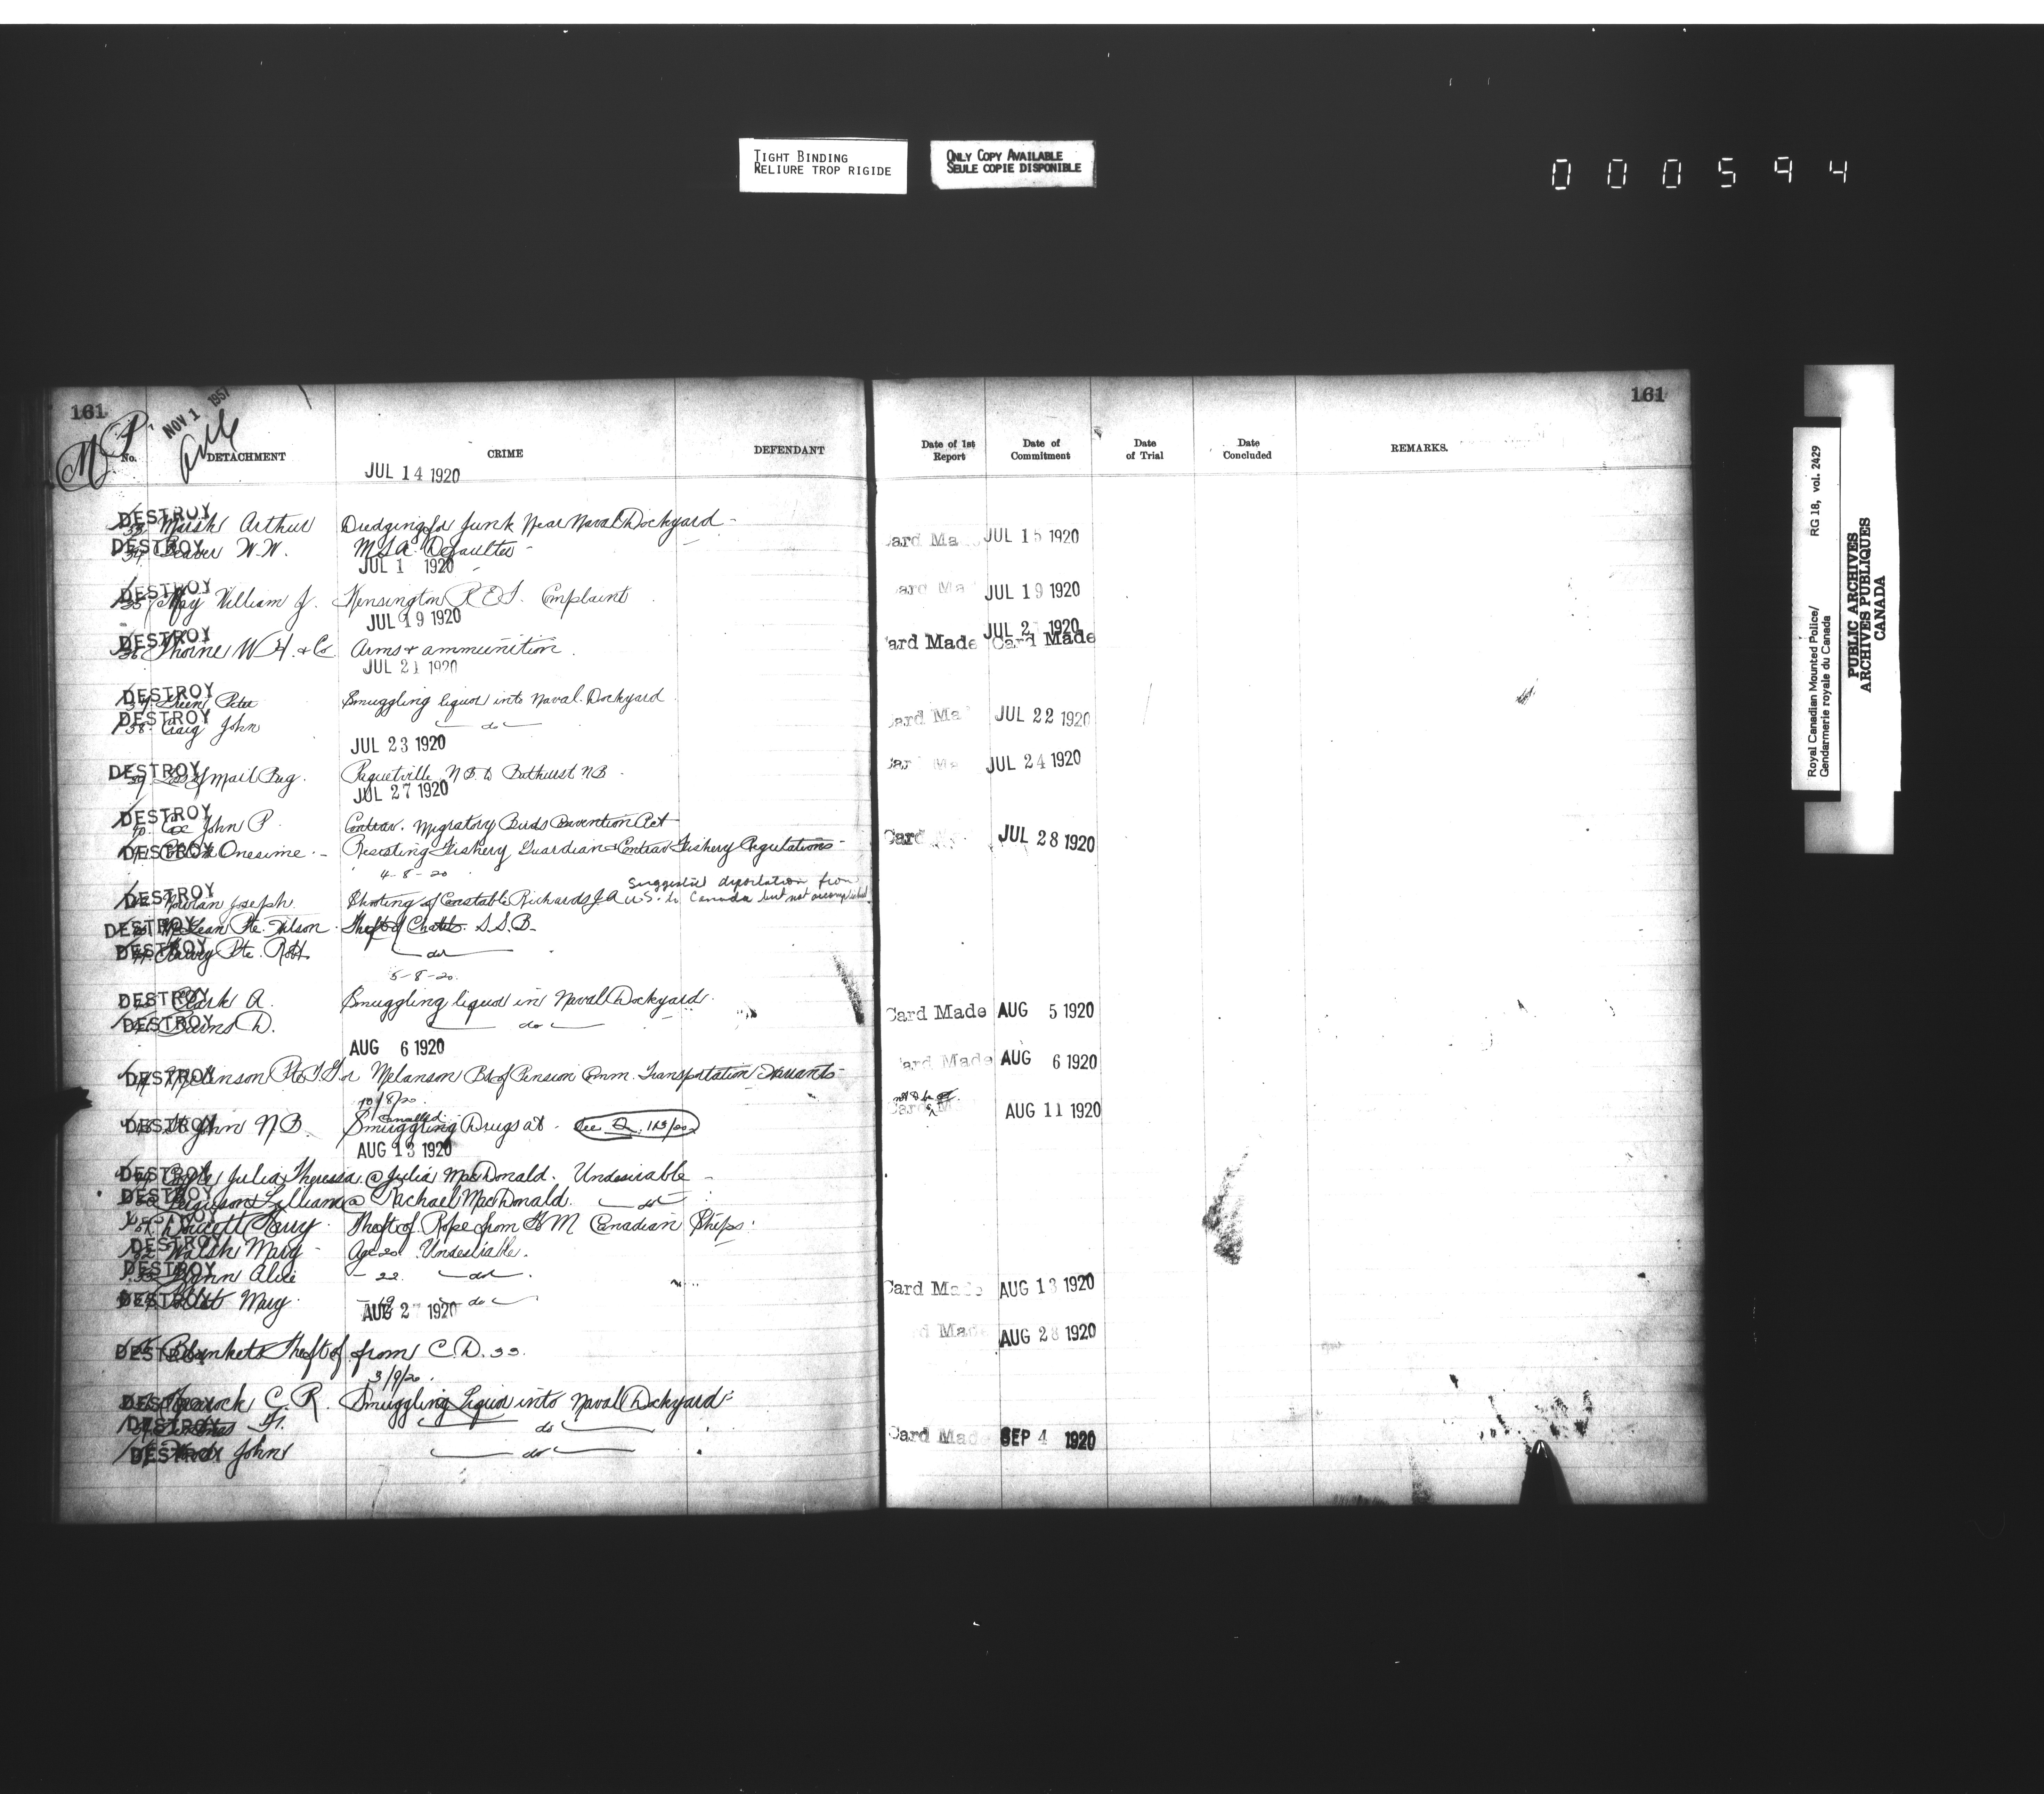 TIGHT BINDING
RELIURE TROP RIGIDE
ONLY COPY AVAILABLE
SEULE COPIE DISPONIBLE
000594
161
M P.
NOV 1 1957
No. DETACHMENT CRIME DEFENDANT
JUL 14 1920
DESTROY
Marsh Arthur Dredging for Junk Near Naval Dockyard -
DESTROY
W.W. M.S.A. Defaulter -
JUL 1 1920
DESTROY
135 May William J. Kensington P.E.I. Complaint
JUL 19 1920
DESTROY
136 Thorne W H. & Co Arms & ammunition.
JUL 21 1920
DESTROY
137 Green Peter Smuggling liquor into Naval Dockyard
DESTROY
138 Craig John do
JUL 23 1920
DESTROY
Loss of Mail Bag. Paquetville N.B. to Bathurst N.B.
JUL 27 1920
DESTROY
John P. Contrav. Migratory Birds Convention Act
DESTROY
Onesime - Resisting Fishery Guardian & Contrav Fishery Regulations -
4-8-20
suggested deportation from
DESTROY
Joseph Shooting of Constable Richards J.A. U.S. to Canada but not accomplished
DESTROY
McLean Pte. Wilson Theft of Chattels. S.S.B.
DESTROY
Pte. Robt. do
5-8-20.
DESTROY
Clark A. Smuggling liquor in Naval Dockyard.
DESTROY
D. do
AUG 6 1920
DESTROY
Pte. or Melanson Bd of Pension Comm. Transportation Warrants -
10/8/20.
DESTROY
St John N B. Smuggling Drugs at - See
AUG 13 1920
DESTROY
Julia Theressa @ Julia MacDonald. Undesirable -
DESTROY
Ferguson Lillian @ Rachael MacDonald. do
DESTROY
Harry Theft of Rope from H M Canadian Ships.
DESTROY
152 Walsh Mary - Age 20 Undesirable.
DESTROY
Alice - 22. do.
DESTROY
Mary. - 19 do
AUG 2 1920
DESTROY
Blankets Theft of from C.D. 33.
3/9/20.
DESTROY
C. R. Smuggling Liquor into Naval Dockyard
DESTROY
do
DESTROY
John do
161
Date of 1st Report Date of Commitment Date of Trial Date Concluded REMARKS.
ard Ma JUL 15 1920
ard Ma JUL 19 1920
JUL 2 1920
ard Made Card Made
ard Ma JUL 22 1920
ar Ma JUL 24 1920
Card JUL 28 1920
Card Made AUG 5 1920
ard Made AUG 6 1920
Card M AUG 11 1920
Card Made AUG 13 1920
d Made AUG 28 1920
Card Mad SEP 4 1920
Royal Canadian Mounted Police/ RG 18, vol. 2429
Gendarmerie royale du Canada
PUBLIC ARCHIVES
ARCHIVES PUBLIQUES
CANADA